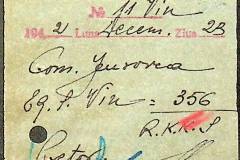 № 11 Vin
1942 Luna Decem. Ziua 23
Com. Jurovca
Eq. P. Vin = 356
R.K.K.S